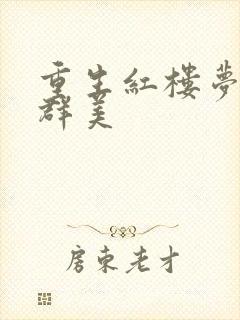 重生紅樓夢
群美
房東老才